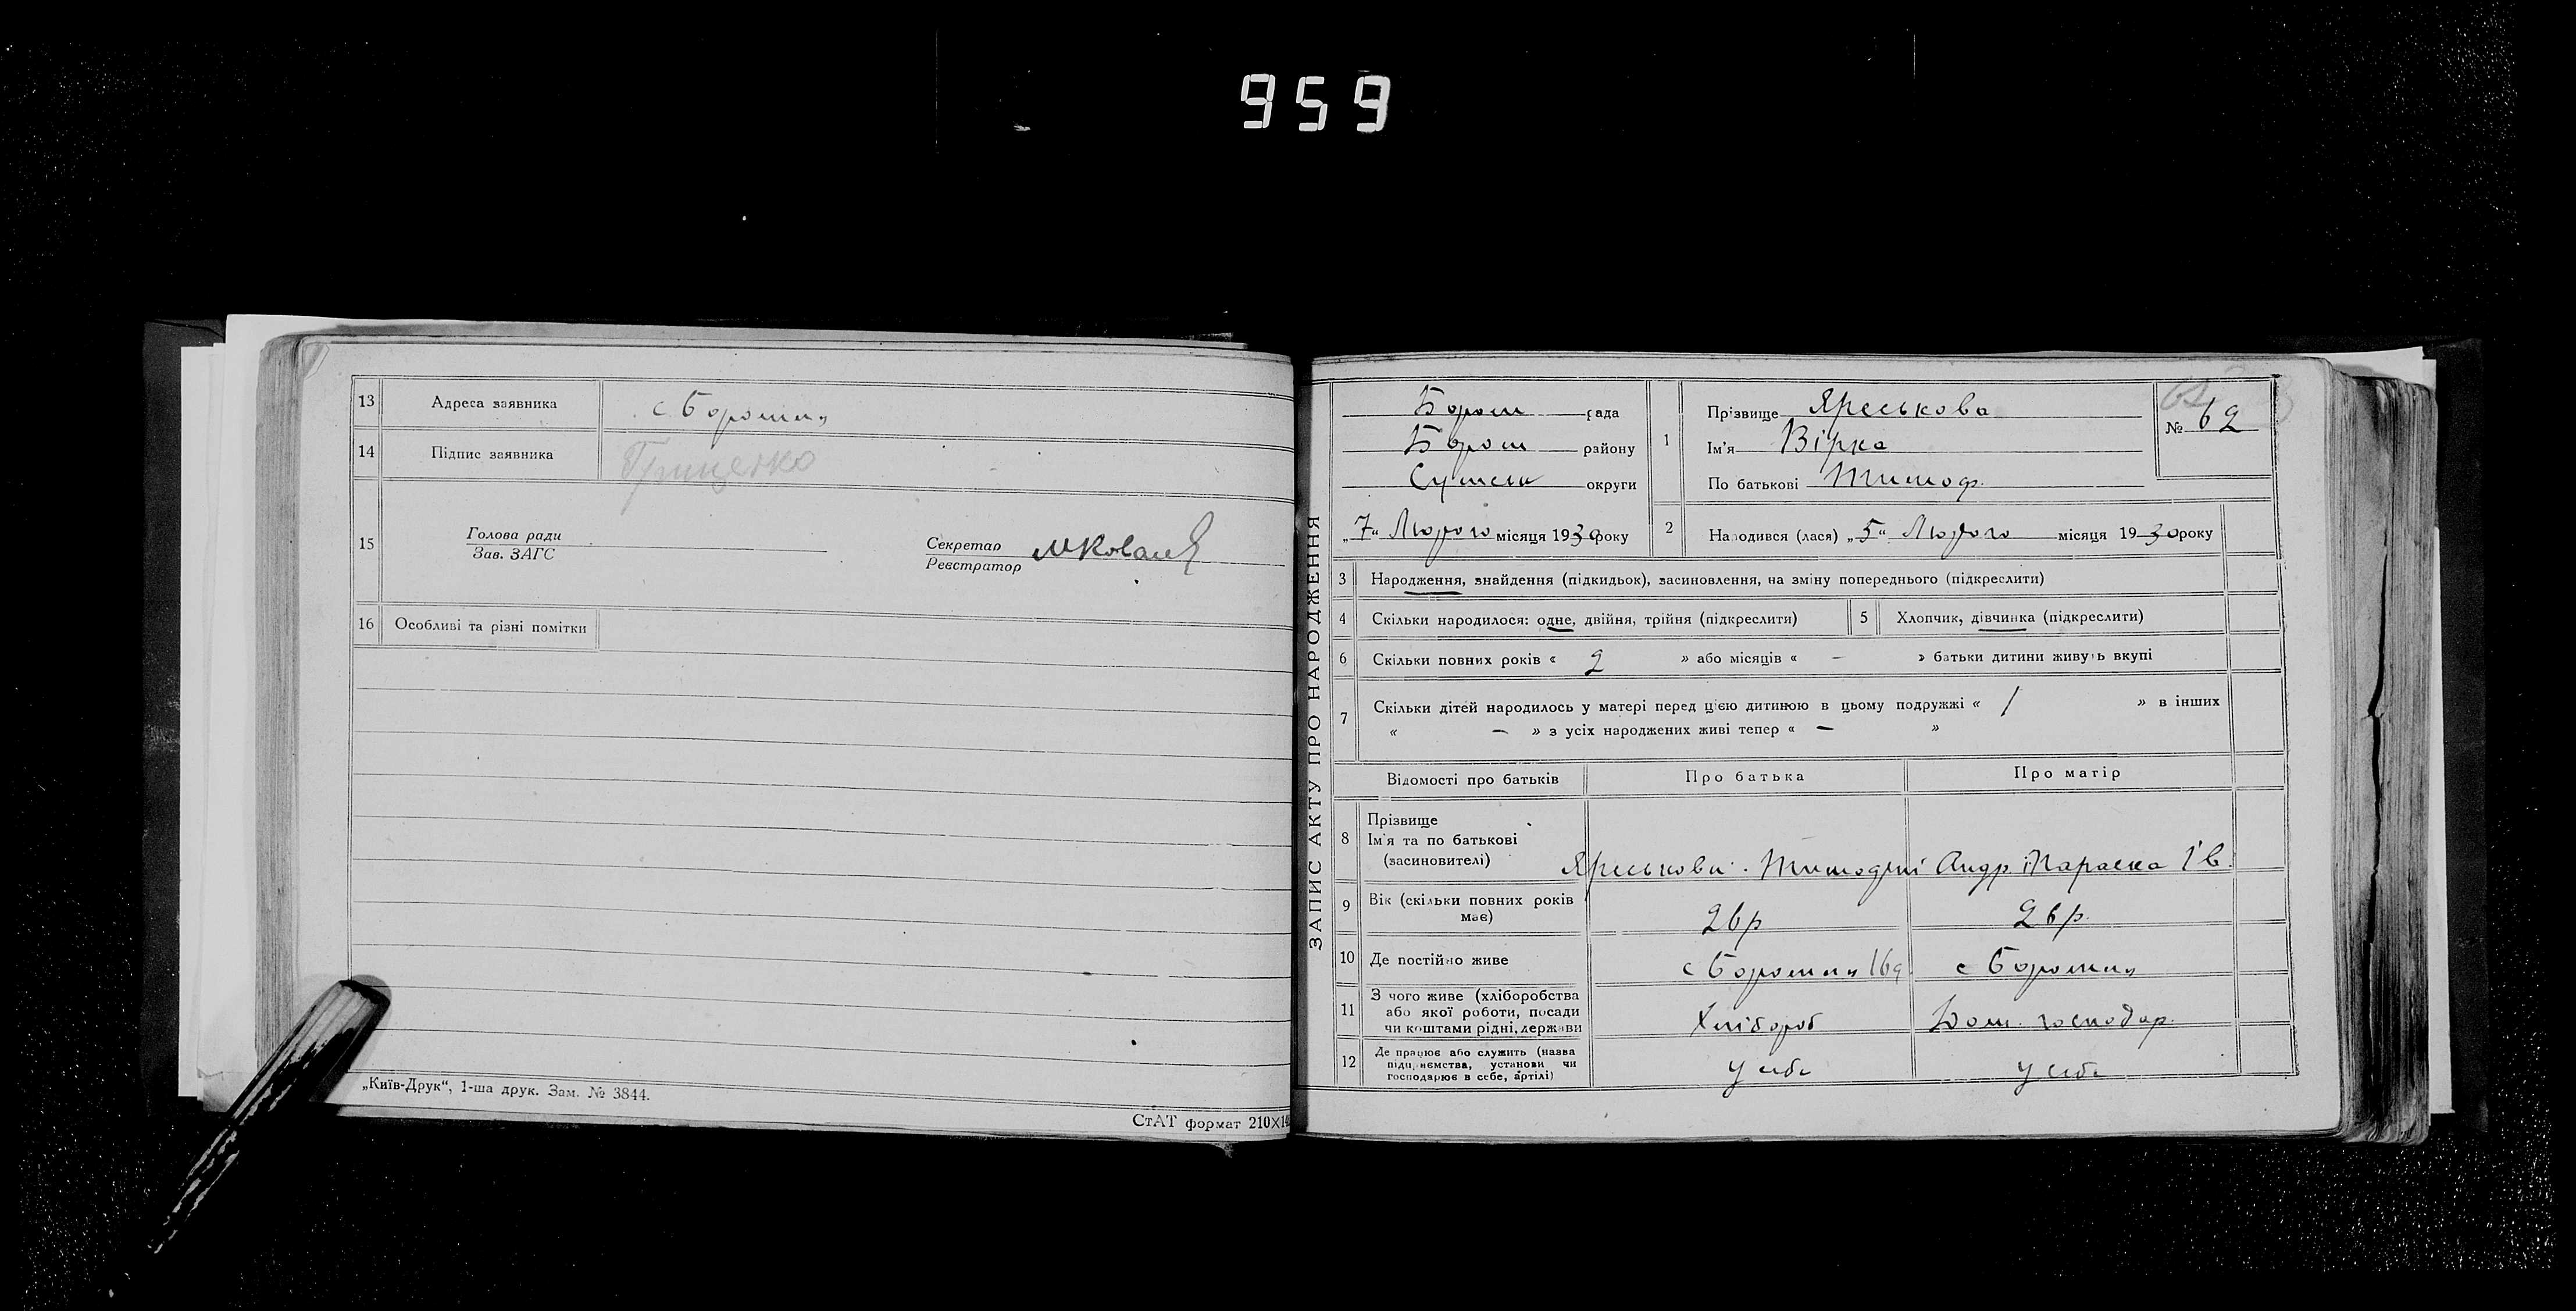 959
13 Адреса заявника с Боромля
14 Підпис заявника Гриценко
15 Голова ради
Зав. ЗАГС
Секретар
Реєстратор
16 Особливі та різні помітки
„Київ-Друк“, 1-ша друк. Зам. № 3844.
СтАТ формат 210×14
ЗАПИС АКТУ ПРО НАРОДЖЕННЯ
Бором рада
Бором району
Сумськ округи
„7“ Лютого місяця 1930 року
1 Прізвище Яреськова
Ім'я Вірка
По батькові Тимоф.
№ 62
2 Народився (лася) „5“ Лютого місяця 1930 року
3 Народження, знайдення (підкидьок), засиновлення, на зміну попереднього (підкреслити)
4 Скільки народилося: одне, двійня, трійня (підкреслити)
5 Хлопчик, дівчинка (підкреслити)
6 Скільки повних років « 2 » або місяців « – » батьки дитини живуть вкупі
7 Скільки дітей народилось у матері перед цією дитиною в цьому подружжі « 1 » в інших
« – » з усіх народжених живі тепер « – »
Відомості про батьків Про батька Про матір
8 Прізвище
Ім'я та по батькові
(засиновителі)
Яреськови Тимофій Андр. і Параска Ів.
9 Вік (скільки повних років
має)
26 р 26 р.
10 Де постійно живе с Боромля с Боромля
11 З чого живе (хліборобства
або якої роботи, посади
чи коштами рідні, держави
Хлібороб Дом. господар.
12 Де працює або служить (назва
підприємства, установи чи
господарює в себе, артілі)
у себе у себе